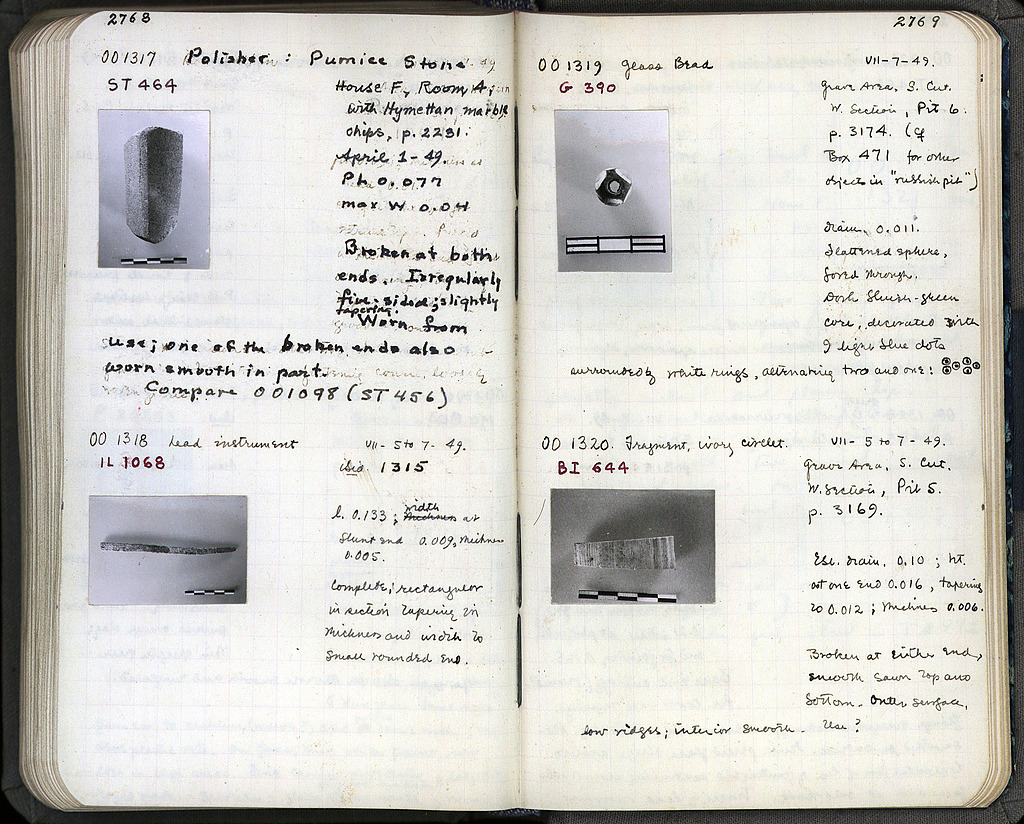 2768
OO 1317 Polisher : Pumice Stone
ST 464
House F, Room A,
with Hymettan marble
chips, p. 2231.
April 1-49.
Ph 0.077
max W 0.04
Broken at both
ends. Irregularly
five-sided; slightly
tapering.
Worn from
use; one of the broken ends also
worn smooth in part.
Compare OO1098 (ST 456)
OO 1318 Lead instrument
VII- 5 to 7 - 49.
IL 1068
1315
l. 0.133; width thickness at
blunt end 0.009, thickness
0.005.
Complete; rectangular
in section tapering in
thickness and width to
small rounded end.
2769
OO 1319 Glass Bead
VII-7-49.
G 390
Grave Area, S. Cut.
W. Section, Pit 6.
p. 3174. (cf
Box 471 for other
objects in "rubbish pit")
diam. 0.011.
Flattened sphere,
bored through.
Dark bluish-green
core, decorated with
9 light blue dots
surrounded by white rings, alternating two and one:
OO 1320. Fragment, ivory circlet.
VII- 5 to 7 - 49.
BI 644
Grave Area, S. Cut.
W. Section, Pit 5.
p. 3169.
Est. diam. 0.10; ht.
at one end 0.016, tapering
to 0.012; thickness 0.006.
Broken at either end,
smooth sawn top and
bottom. Outer surface,
low ridges; interior smooth. Use?